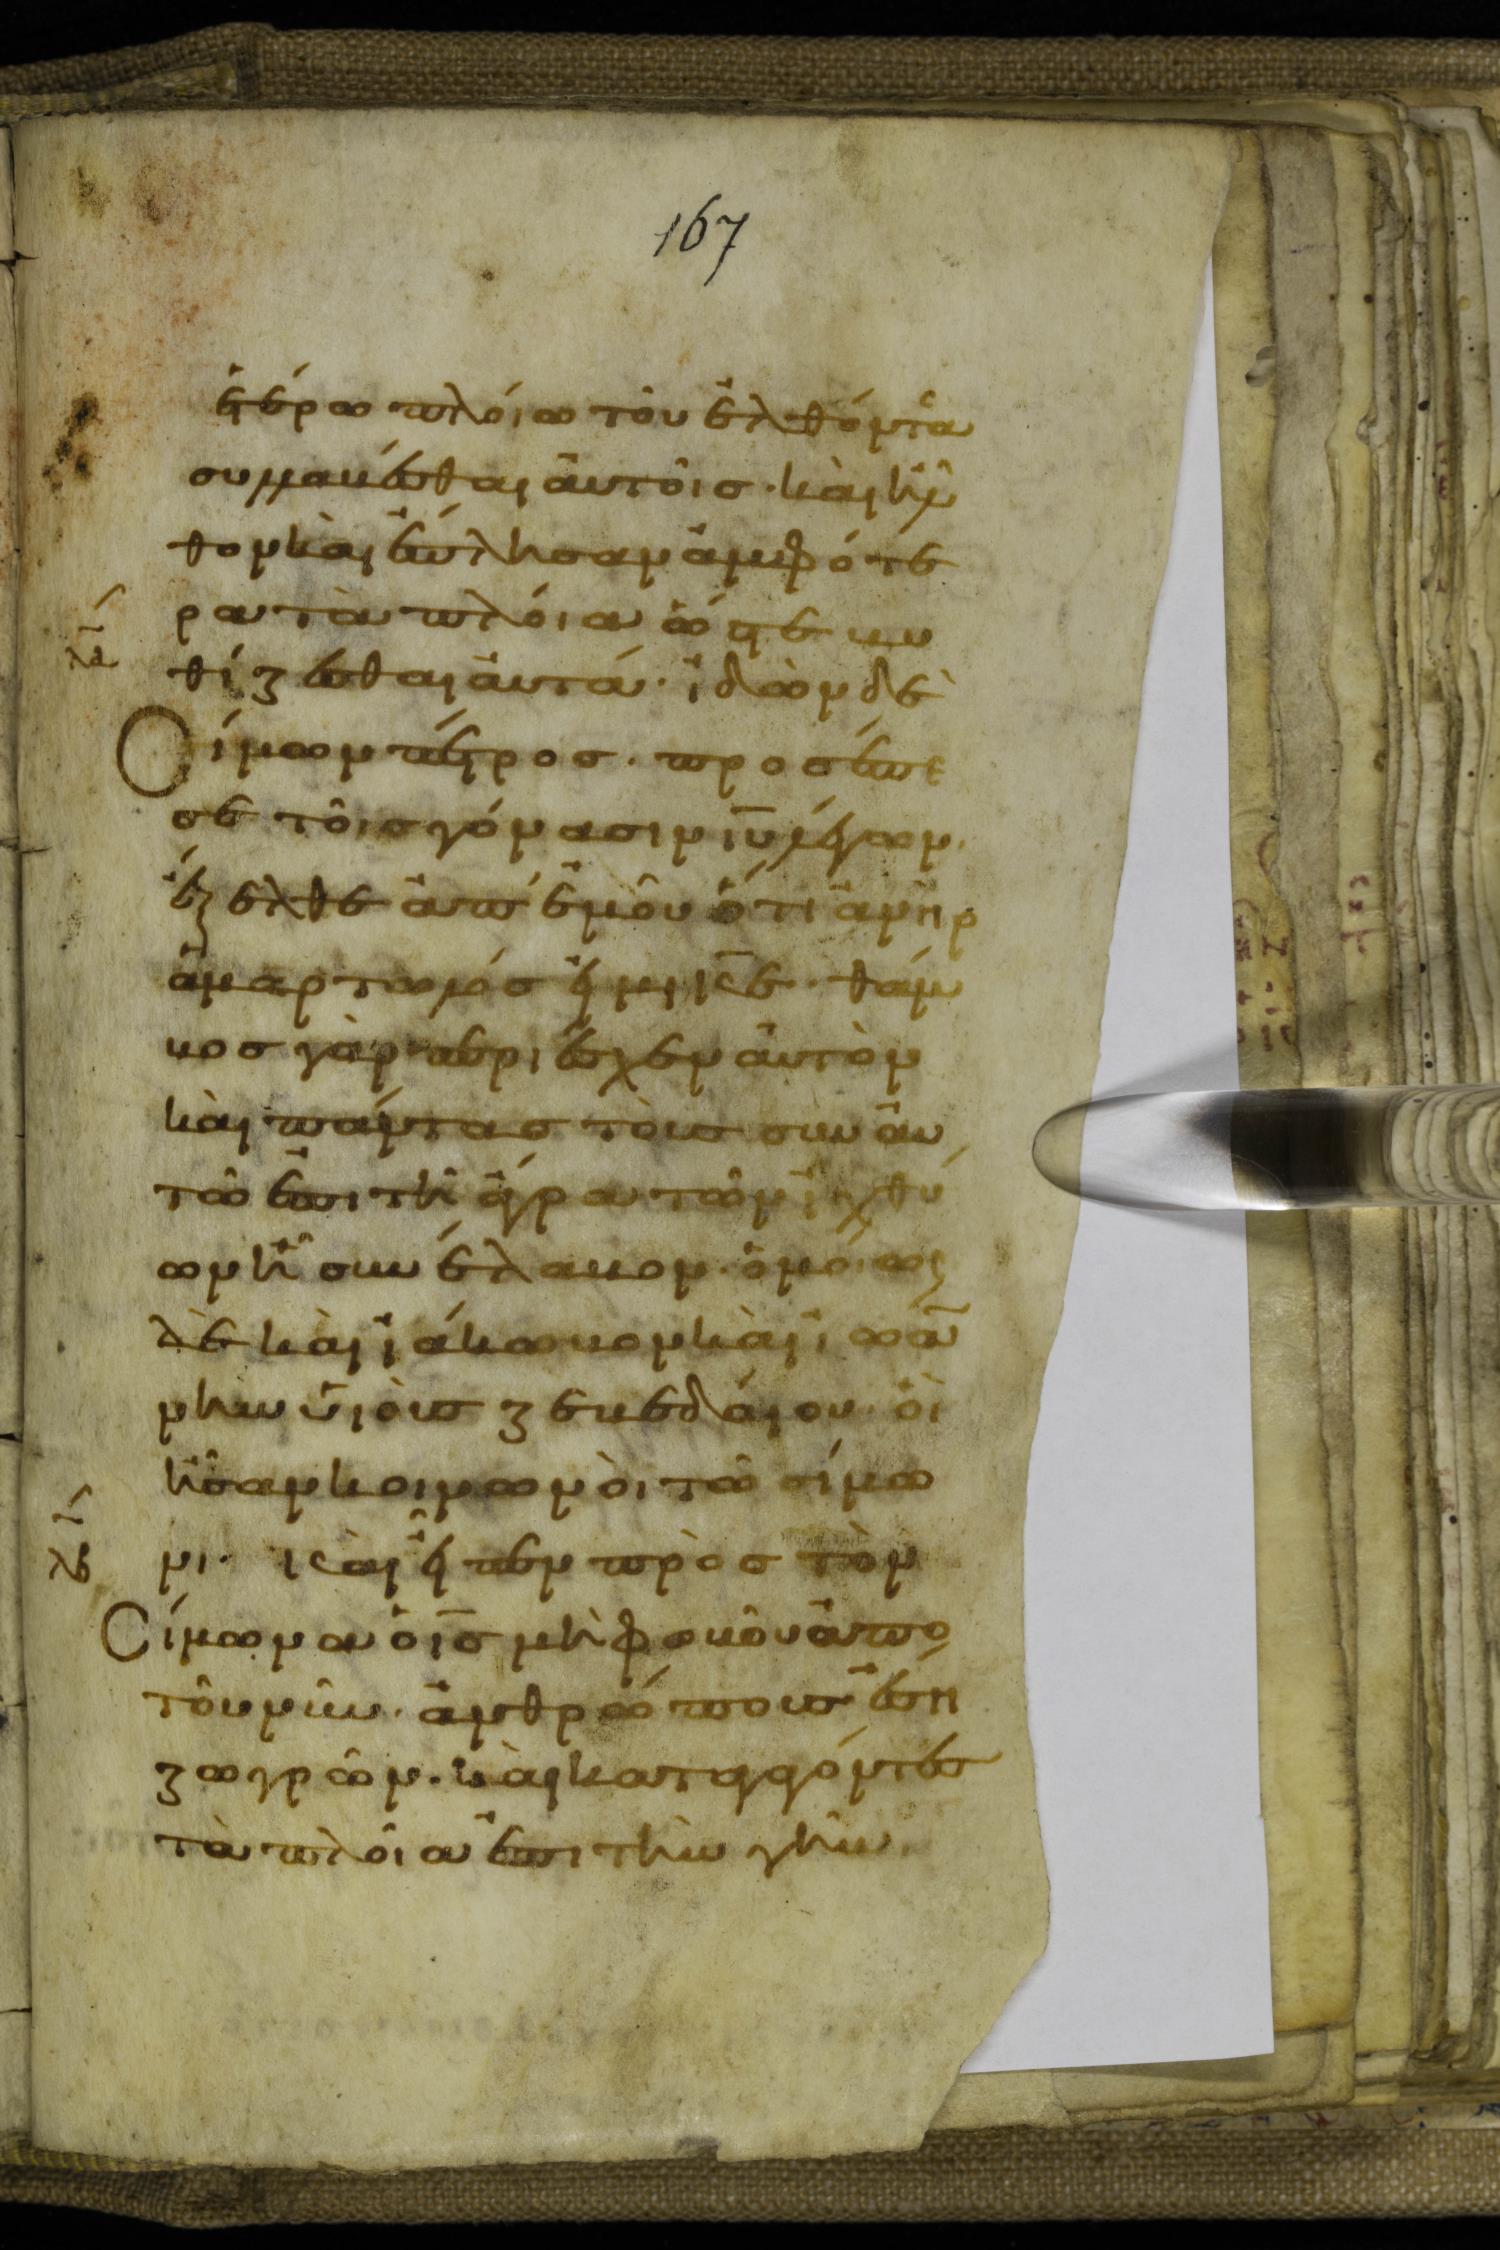 167
ἑτέρω πλόιω τοῦ ἐλθόντα
συλλαβέσθαι ἀυτοῖσ· κὰι ἦλ
θον κὰι ἔπλησαν ἀμφότε
ρα τὰ πλόια ὥστε βυ
λα θίζεσθαι ἀυτά· ἰδὼν δὲ
Σίμων πέτροσ· προσέπε
σε τοῖσ γόνασιν ιυ λέγων·
ἔξελθε ἀπ' ἐμοῦ ὅτι ἀνὴρ
ἁμαρτωλόσ ἐιμι κε· θάμ
βοσ γὰρ περιέσχεν ἀυτὸν
κὰι πάντασ τοὺσ συν ἀυ
τῶ ἐπι τῆ ἄγρα τῶν ἰχθύ
ων ἧ συνέλαβον· ὁμοίωσ
δὲ κὰι ἰάκωβον κὰι ἰωάν
νην υἱοὺσ ζεβεδάιου· οἱ
ἦσαν κοινωνοὶ τῶ σίμω
λβ νι· κὰι εἶπεν πρὸσ τὸν
Σίμωνα ὁ ισ μὴ φοβοῦ ἀπο
τοῦ νῦν· ἀνθρώπουσ ἔση
ζωγρῶν· κὰι καταγαγόντεσ
τὰ πλοῖα ἐπι τὴν γῆν·